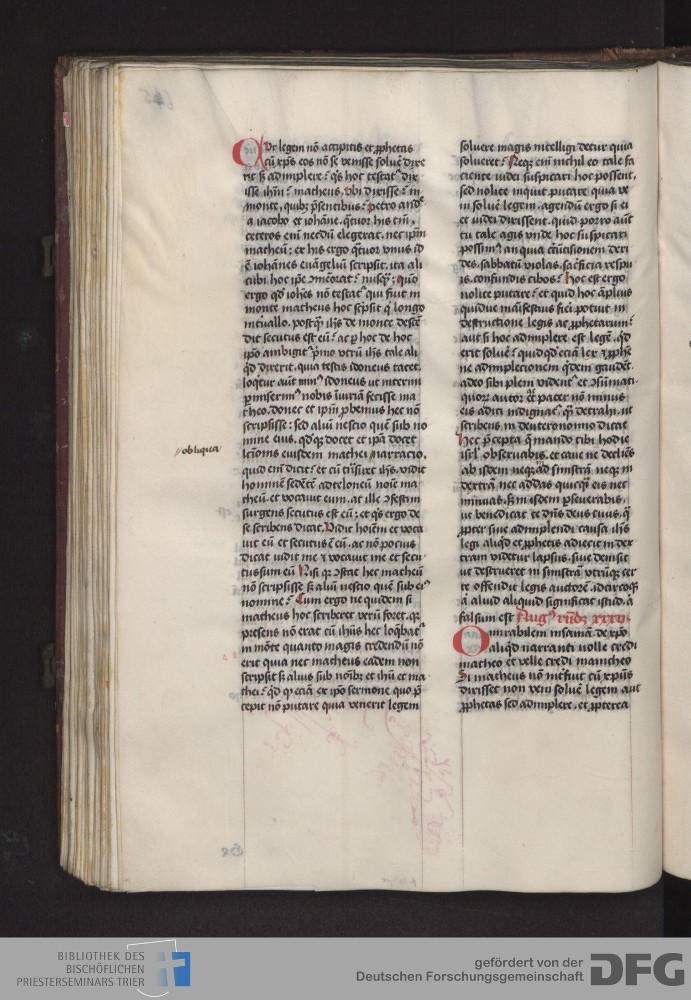 Cur legem nō accipitis et ꝓphetas
cū xp̄s eos nō se venisse soluē dixe
rit sꝫ adimplere? q̄s hoc testat᷑ dix
isse ihm̄? matheus, vbi dixisse? in
monte, quibꝫ p̄sentibus? petro and̄
a iacobo et iohāne, q̄tuor his tm̄,
ceteros em̄ necdū elegerat, nec ip̄m
matheū; ex his ergo q̄tuor vnus id
ē iohānes euāgeliū scripsit, ita ali
cubi hoc ip̄e om̄eōrat? nusqꝫ; quō
ergo qd̓ ioh̄es nō testat᷑ qui fuit in
monte matheus hoc scp̄sit q̓ longo
intuallo, postqꝫ ih̄s de monte descē
dit secutus est eū? ac ꝑ hoc de hoc
ip̄o ambigit᷑ p̓mo vtrū ih̄s tale ali
qd̓ dixerit, quia testis idoneus tacet,
loq̄tur aūt min᷒ idoneus ut interim
ꝑmiserim᷒ nobis iniuriā fecisse ma
theo, donec et ip̄m ꝓbemus hec nō
scripsisse: sed aliū nescio quē sub no
mine eius, qd̓qꝫ docet et ip̄a docet
lc̄ionis eiusdem mathei narracio,
obliqua
quid em̄ dicit? et cū trāsiret ih̄s, vidit
hominē sedētē ad teloneū noīe ma
theū, et vocauit eum, at ille ↄfestim
surgens secutus est eū; et q̄s ergo de
se scribens dicat, Vidit hoīem et voca
uit eū et secutus ē eū, ac nō pocius
dicat uidit me ⁊ vocauit me et secu
tus sum eū Nisi qꝫ ↄstat hec matheū
nō scripsisse sꝫ aliū nescio quē sub ei᷒
nomine? Cum ergo ne quidem si
matheus hoc scriberet verū foret, qꝫ
presens nō erat cū ihūs hec loq̄bat᷑
in mōte quanto magis credendū nō
erit quia nec matheus eadem non
scripsit sꝫ alius sub noībꝫ et ihū et ma
thei? qd̓ qꝫ eciā ex ip̄o sermone quo p̄
cepit nō putare quia venerit legem
soluere magis intelligi detur quia
solueret? Neqꝫ em̄ nichil eo tale fa
ciente iudei suspicari hoc possent,
sed nolite inquit putare quia ve
ni soluē legem, agendū ergo si ei
et iudei dixissent, quid porro aūt
tu tale agis vnde hoc suspicari
possim᷒ an quia cūcisionem deri
des, sabbatū violas, sac̓ficia respu
is, confundis cibos? hoc est ergo
nolite putare? et quid hoc āplius
quidue maīfestius fieri potuit in
destructione legis ac ꝓphetarum?
aut si hoc adimplere est legē, qd̓
erit soluē? quid qd̓ eciā lex ⁊ ꝓphe
ne adimplecionem q̄dem gaudēt
adeo sibi plem vident᷑ et ↄsūmati
quorꝫ auctor et pater nō minus
eis adici indignat᷑ qꝫ detrahi, ut
scribens in deuteronomio dicat
hec p̄cepta q̄ mando tibi hodie
isrl̓ obseruabis, et caue ne declies
ab isdem neqꝫ ad sinistrā neqꝫ in
dextrā nec addas quicqꝫ eis nec
minuas, sꝫ in eisdem ꝑseuerabis,
ut benedicat te dn̄s deus tuus, q̄
ꝓpter siue adimplendi causa ih̄s
legi aliqd̓ et ꝓphetis adiecit in dex
tram videtur lapsus, siue demsit
ut destrueret in sinistrā vtrūqꝫ cer
te offendit legis auctorē, idcircoqꝫ
a aliud aliquid significat istud, a
falsum est Aug᷒ rn̄dꝫ xxxv.
O mirabilem insaniā, de xp̄o
aliqd̓ narranti nolle credi
matheo et velle credi manicheo
Si matheus nō int̓fuit cū xp̄us
dixisset non veni soluē legem aut
ꝓphetas sed adimplere, et ꝓpterea
BIBLIOTHEK DES
BISCHÖFLICHEN
PRIESTERSEMINARS TRIER
gefördert von der
Deutschen Forschungsgemeinschaft
DFG